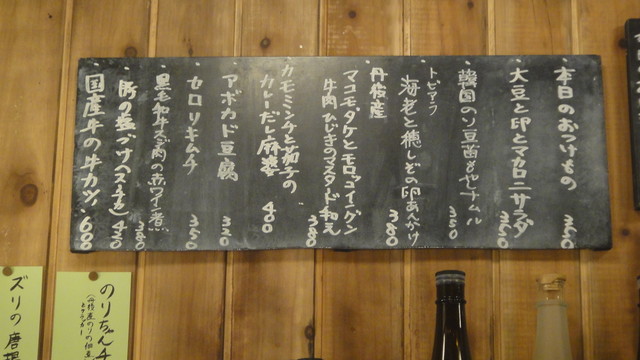 本日のおつけもの 360
大豆と卵とマカロニサラダ 350
韓国のソ豆苗もやしナムル 350
トビアラ
海老と穂じその卵あんかけ 380
丹波産
マコモダケとモロッコインゲン
牛肉ひじきのマスタード和え 380
カモミンチと茄子の
カレーだし麻婆 400
アボカド豆腐 320
セロリキムチ 350
黒毛和牛スジ肉の赤ワイン煮 380
豚の
国産牛の牛カツ 680
のりちゃんチ
ズリの唐揚